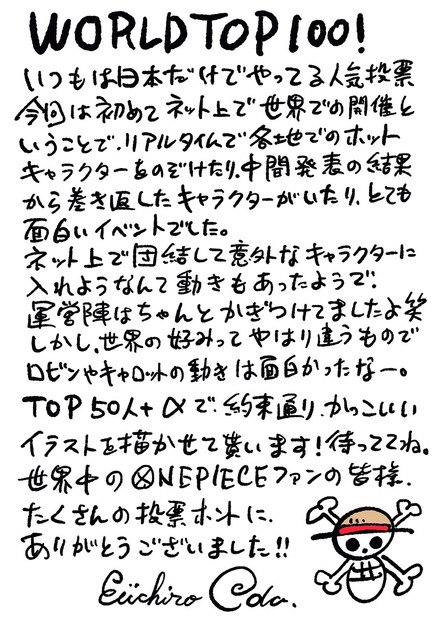 WORLD TOP 100!
いつもは日本だけでやってる人気投票
今回は初めてネット上で世界での開催と
いうことで、リアルタイムで各地でのホット
キャラクターをのぞけたり、中間発表の結果
から巻き返したキャラクターがいたり、とても
面白いイベントでした。
ネット上で団結して意外なキャラクターに
入れようなんて動きもあったようで、
運営陣はちゃんとかぎつけてましたよ笑
しかし、世界の好みってやはり違うもので
ロビンやキャロットの動きは面白かったなー。
TOP 50人+αで、約束通り、かっこいい
イラストを描かせて貰います!待っててね。
世界中のONEPIECEファンの皆様、
たくさんの投票ホントに、
ありがとうございました!!
Eiichiro Oda.